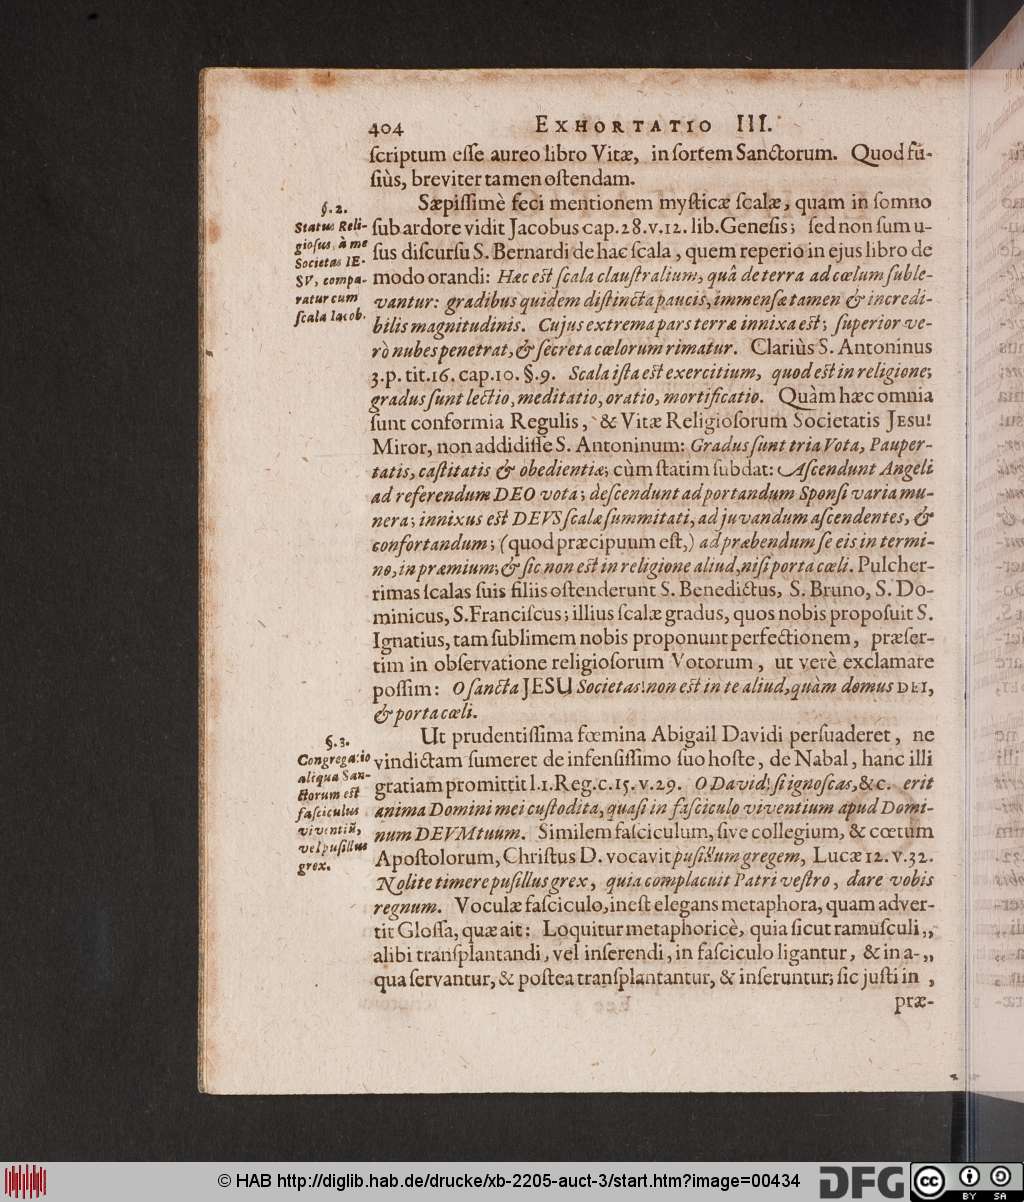 404 EXHORTATIO III.
ſcriptum eſſe aureo libro Vitæ, in ſortem Sanctorum. Quod fũ-
ſiùs, breviter tamen oſtendam.
§. 2.
Status Reli-
gioſus, à me
Societas IE-
SV, compa-
ratur cum
ſcala Iacob.
Sæpiſſimè feci mentionem myſticæ ſcalæ, quam in ſomno
ſub ardore vidit Jacobus cap. 28. v. 12. lib. Geneſis; ſed non ſum u-
ſus diſcurſu S. Bernardi de hac ſcala, quem reperio in ejus libro de
modo orandi: Hæc est ſcala clauſtralium, quâ de terra ad cælum ſuble-
vantur: gradibus quidem diſtincta paucis, immenſæ tamen & incredi-
bilis magnitudinis. Cujus extrema pars terræ innixa est; ſuperior ve-
rò nubes penetrat, & ſecreta cælorum rimatur. Clariùs S. Antoninus
3. p. tit. 16. cap. 10. §. 9. Scala iſta est exercitium, quod est in religione;
gradus ſunt lectio, meditatio, oratio, mortificatio. Quàm hæc omnia
ſunt conformia Regulis, & Vitæ Religioſorum Societatis JESU!
Miror, non addidiſſe S. Antoninum: Gradus ſunt tria Vota, Pauper-
tatis, caſtitatis & obedientiæ; cùm ſtatim ſubdat: Aſcendunt Angeli
ad referendum DEO vota; deſcendunt ad portandum Sponſi varia mu-
nera; innixus est DEVS ſcalæ ſummitati, ad juvandum aſcendentes, &
confortandum; (quod præcipuum eſt,) ad præbendum ſe eis in termi-
no, in præmium; & ſic non est in religione aliud, niſi porta cæli. Pulcher-
rimas ſcalas ſuis filiis oſtenderunt S. Benedictus, S. Bruno, S. Do-
minicus, S. Franciſcus; illius ſcalæ gradus, quos nobis propoſuit S.
Ignatius, tam ſublimem nobis proponunt perfectionem, præſer-
tim in obſervatione religioſorum Votorum, ut verè exclamare
poſſim: O ſancta JESU Societas! non est in te aliud, quàm domus DEI,
& porta cæli.
§. 3.
Congregatio
aliqua San-
ctorum est
faſciculus
viventiũ,
vel puſillus
grex.
Ut prudentiſſima fœmina Abigail Davidi perſuaderet, ne
vindictam ſumeret de infenſiſſimo ſuo hoſte, de Nabal, hanc illi
gratiam promittit l. 1. Reg. c. 15. v. 29. O David! ſi ignoſcas, &c. erit
anima Domini mei cuſtodita, quaſi in faſciculo viventium apud Domi-
num DEVM tuum. Similem faſciculum, ſive collegium, & cœtum
Apoſtolorum, Chriſtus D. vocavit puſillum gregem, Lucæ 12. v. 32.
Nolite timere puſillus grex, quia complacuit Patri veſtro, dare vobis
regnum. Voculæ faſciculo, ineſt elegans metaphora, quam adver-
tit Gloſſa, quæ ait: Loquitur metaphoricè, quia ſicut ramuſculi „
alibi tranſplantandi, vel inſerendi, in faſciculo ligantur, & in a- „
qua ſervantur, & poſtea tranſplantantur, & inſeruntur; ſic juſti in ,
præ-
© HAB http://diglib.hab.de/drucke/xb-2205-auct-3/start.htm?image=00434
DFG
cc
BY SA